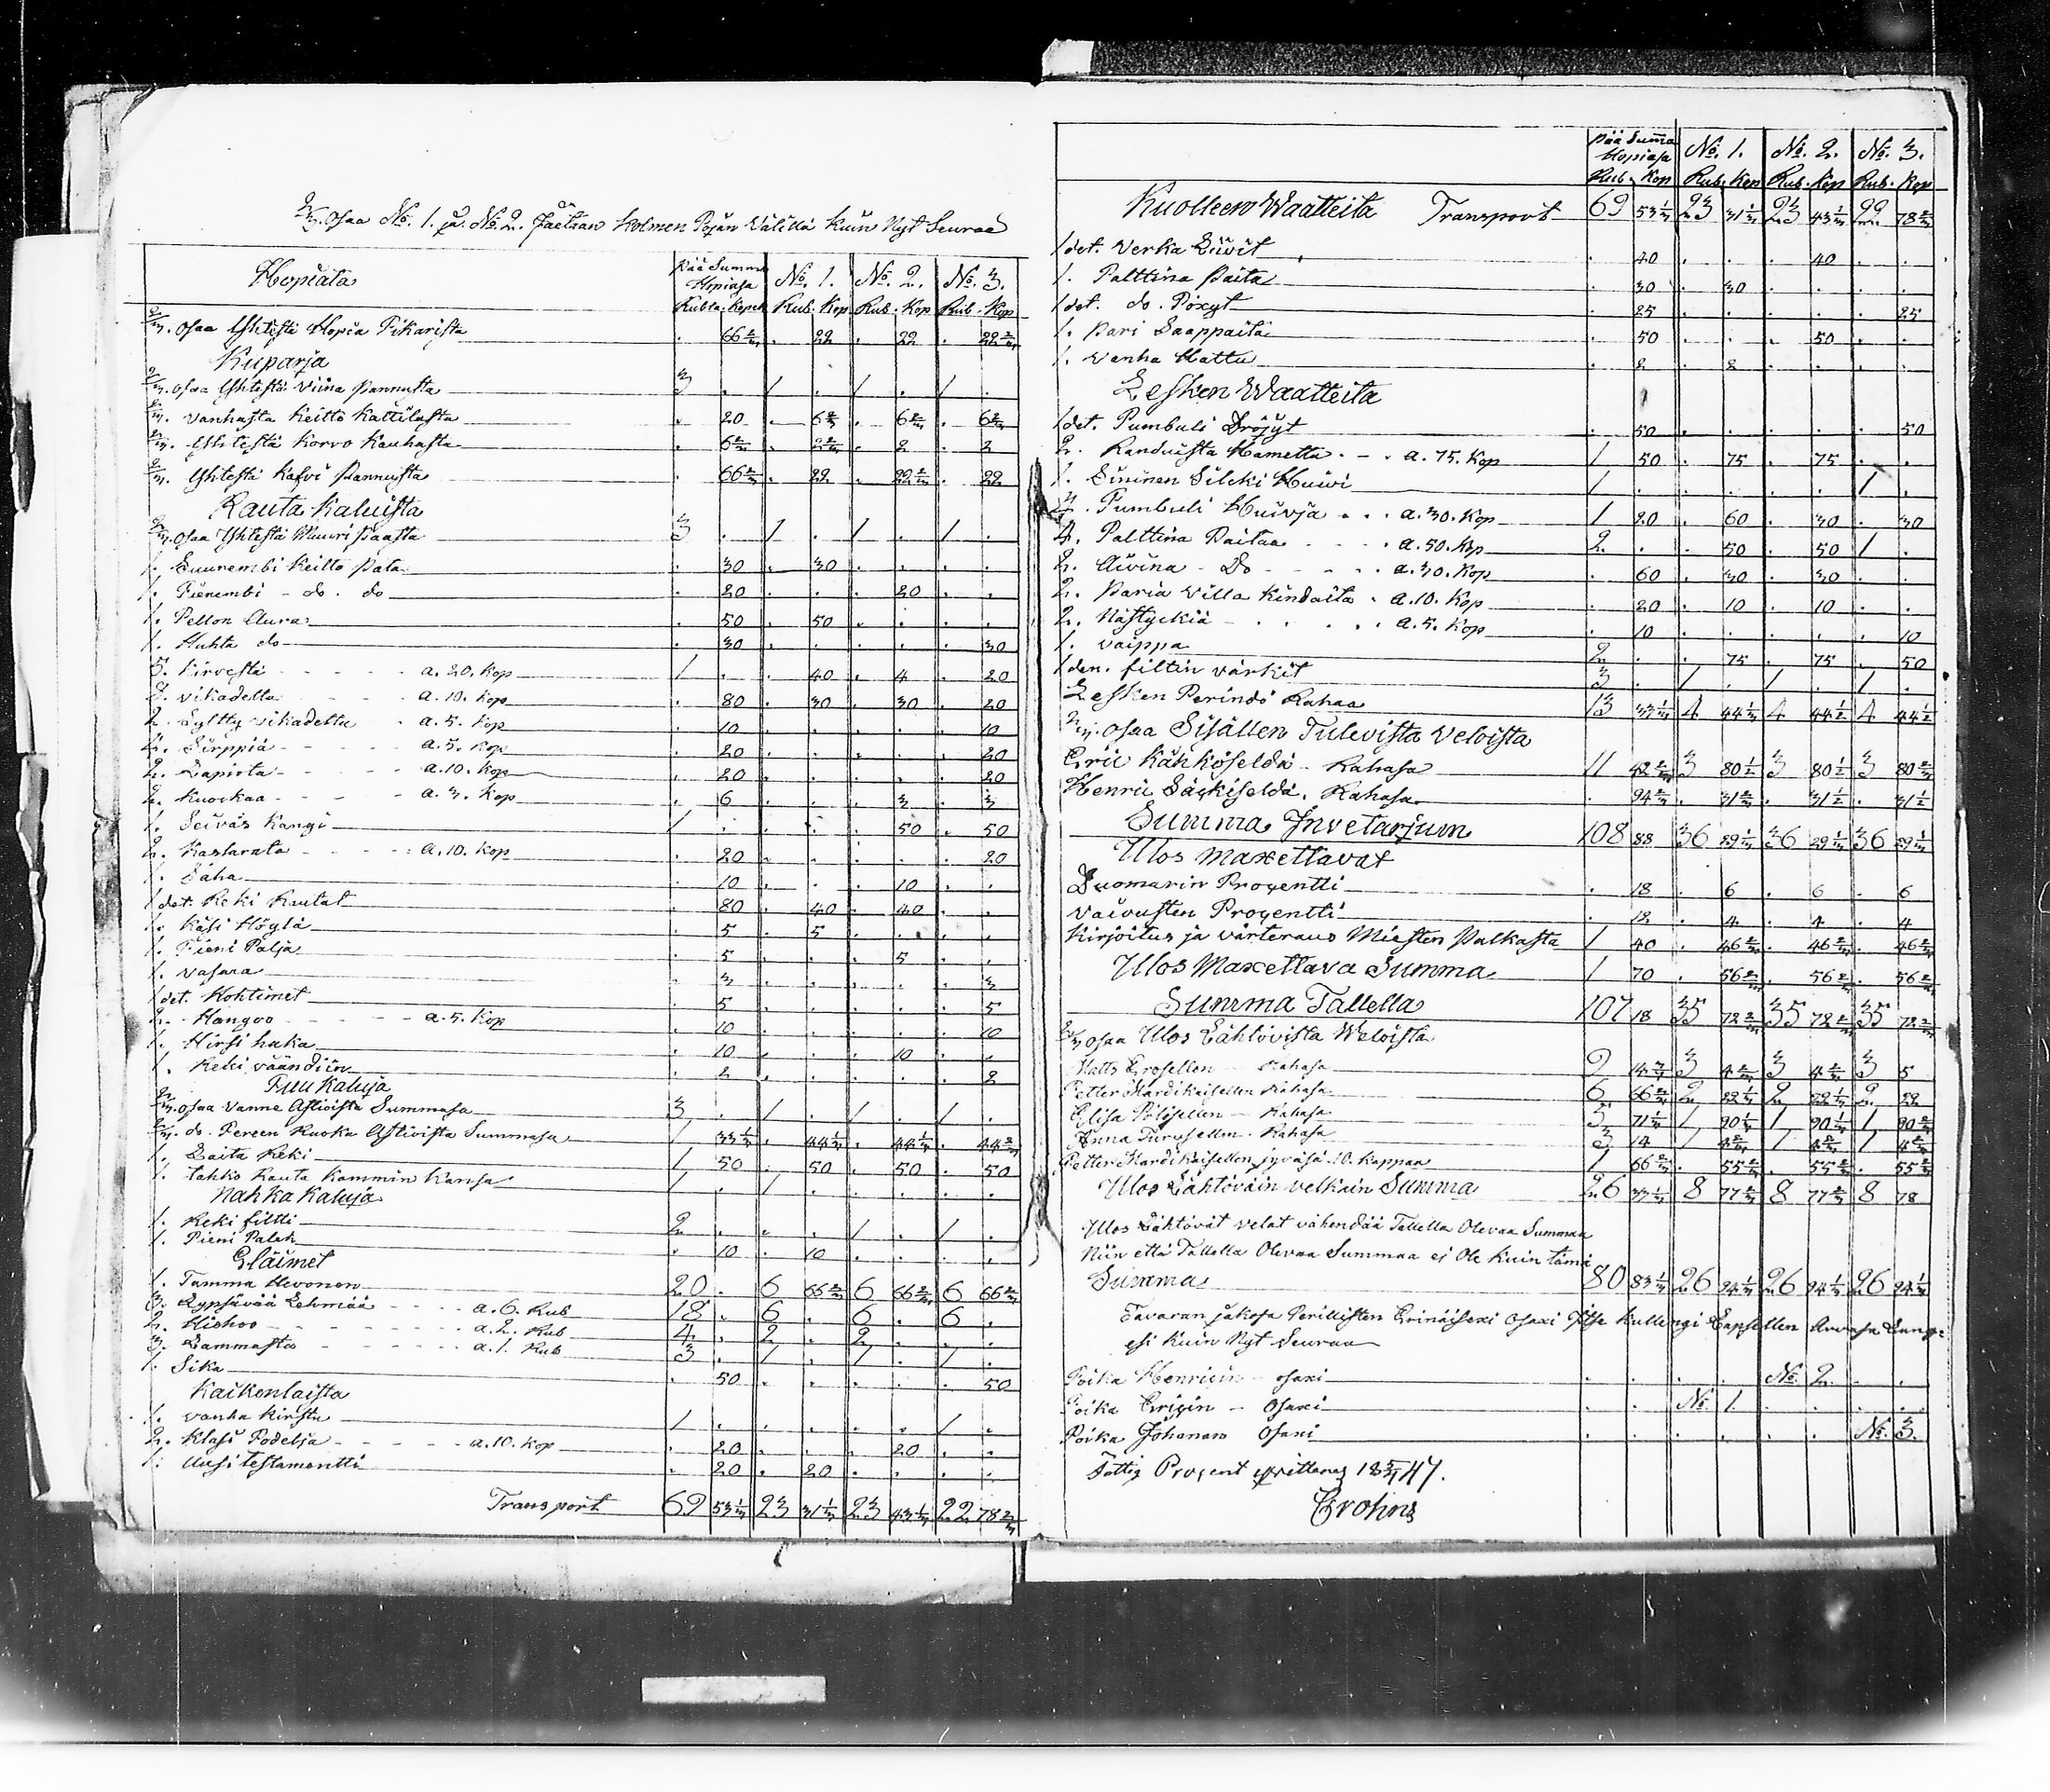 2/3 Osaa No. 1. ja No. 2. Jaetaan Kolmen Pojan Välillä Kuin Nyt Seuraa
Hopiata Pää Summa Hopiasa No. 1. No. 2. No. 3.
Rubla. Kopek Rub. Kop Rub. Kop Rub. Kop
2/3. Osaa Yhtestä Hopia Pikarista . 66 2/3 . 22 . 22 . 22 2/3
Kuparia
2/3. Osaa Yhtestä Viina Pannusta 3 . 1 . 1 . 1 .
2/3. Vanhasta Keitto Kattilasta . 20 . 6 2/3 . 6 2/3 . 6 2/3
2/3. Yhtestä Korvo Kauhasta . 6 2/3 . 2 2/3 . 2 . 2
2/3. Yhtestä Kafvi Pannusta . 66 2/3 . 22 . 22 2/3 . 22
Rauta Kaluista
2/3. Osaa Yhtestä Muuri Paasta 3 . 1 . 1 . 1 .
1. Suurembi Keitto Pata . 30 . 30 . . . .
1. Pienembi - do. do . 20 . . . 20 . .
1. Pellon Aura . 50 . 50 . . . .
1. Huhta do . 30 . . . . . 30
5. Kirvestä - - - - a. 20. Kop 1 . . 40 . 4 . 20
8. Vikadetta - - - a. 10. Kop . 80 . 30 . 30 . 20
2. Lyltty Vikadetta . a. 5. Kop . 10 . . . . . 10
4. Sirppiä - - - - a. 5. Kop . 20 . . . . . 20
2. Lapiota - - - - a. 10. Kop . 20 . . . . . 20
2. Kuockaa - - - - a. 3. Kop . 6 . . . 3 . 3
1. Seiväs Kangi 1 . . . . 50 . 50
2. Rastarata - - - - a. 10. Kop . 20 . . . . . 20
1. Saha . 10 . . . 10 . .
1 det. Reki Rautat . 80 . 40 . 40 . .
1. Käsi Höylä . 5 . 5 . . . .
1. Pieni Palja . 5 . . . 5 . .
1. Vasara . 3 . . . . . 3
1 det. Kohtimet . 5 . . . . . 5
2. Hangoo - - - - a. 5. Kop . 10 . . . . . 10
1. Hirsi haka . 10 . . . 10 . .
1. Reki väändiin . 2 . . . . . 2
Puu Kaluja
2/3. Osaa Vanne Astioista Summasa 3 . 1 . 1 . 1 .
2/3. do. Pereen Ruoka Astioista Summasa 1 33 1/3 . 44 1/3 . 44 1/3 . 44 2/3
1. Laita Reki 1 50 . 50 . 50 . 50
1. tahko Rauta Kammin Kansa 1 . 1 . . . . .
Nahka Kaluja
1. Reki filtti 2 . . . 1 . 1 .
1. Pieni Palah . 10 . 10 . . . .
Eläimet
1. Tamma Hevonen 20 . 6 66 2/3 6 66 2/3 6 66 2/3
3. Lypsävää Lehmää - - - a. 6. Rub 18 . 6 . 6 . 6 .
2. Hiehoo - - - - - a. 2. Rub 4 . 2 . 2 . . .
3. Lammasta - - - - - a. 1. Rub 3 . 1 . 1 . 1 .
1. Sika . 50 . . . . . 50
Kaikenlaista
1. Vanha Kirstu 1 . . . . . 1 .
2. Klasi Podelja - - - - a. 10. Kop . 20 . . . 20 . .
1. Uusi testamentti . 20 . 20 . . . .
Transport 69 53 1/3 23 31 1/3 23 43 1/3 22 78 2/3
Pää Summa Hopiasa No. 1. No. 2. No. 3.
Rub. Kop Rub. Kop Rub. Kop Rub. Kop
Kuolleen Waatteita Transport 69 53 1/3 23 31 1/3 23 43 1/3 22 78 2/3
1 det. Verka Liivit . 40 . . . 40 . .
1. Palttina Paita . 30 . 30 . . . .
1 det. do. Pöxyt . 25 . . . . . 25
1. Pari Saappaita . 50 . . . 50 . .
1. Vanha Hattu . 8 . 8 . . . .
Lesken Waatteita
1 det. Pumbuli Dröjyt . 50 . . . . . 50
2. Randuista Hametta . - . a. 75. Kop 1 50 . 75 . 75 . .
1. Sininen Silcki Huivi 1 . . . . . 1 .
4. Pumbuli Huivja . . . a. 30. Kop 1 20 . 60 . 30 . 30
4. Palttina Paitaa - - - . a. 50. Kop 2 . . 50 . 50 1 .
2. Aivina - Do - - - . a. 30. Kop . 60 . 30 . 30 . .
2. Paria Villa Kindaita . a. 10. Kop . 20 . 10 . 10 . .
2. Nästyckiä - . . . . a. 5. Kop . 10 . . . . . 10
1. Vaippa 2 . . 75 . 75 . 50
1 den. filtin värkit 3 . 1 . 1 . 1 .
Lesken Perindö Rahaa 13 33 1/3 4 44 1/3 4 44 1/2 4 44 1/2
2/3. Osaa Sisällen Tulevista Veloista
Eric Kähköseldä - Rahasa 11 42 2/3 3 80 1/2 3 80 1/2 3 80 2/3
Henric Säskiseldä. Rahasa . 94 2/3 . 31 2/3 . 31 1/2 . 31 1/2
Summa Invetarjum 108 88 36 29 1/3 36 29 1/3 36 29 1/3
Ulos Maxettavat
Duomarin Procentti . 18 . 6 . 6 . 6
Vaivasten Procentti . 12 . 4 . 4 . 4
Kirjoitus ja värteraus Miesten Palkasta 1 40 . 46 2/3 . 46 2/3 . 46 2/3
Ulos Maxettava Summa 1 70 . 56 2/3 . 56 2/3 . 56 2/3
Summa Tallella 107 18 35 72 2/3 35 72 2/3 35 72 2/3
2/3 osaa Ulos Lähtövistä Weloista
Matts Grosellen - Rahasa 9 14 3/3 3 4 2/3 3 4 2/3 3 5
Petter Hardikaisellen Rahasa 6 66 2/3 2 22 1/3 2 22 1/3 2 22
Elisa Pölösellen - Rahasa 5 71 1/3 1 90 1/3 1 90 1/3 1 90 2/3
Anna Turusellen. Rahasa 3 14 1 4 2/3 1 4 2/3 1 4 2/3
Petter Hardikaisellen jyväsä 10. Kappaa 1 66 2/3 . 55 2/3 . 55 2/3 . 55 2/3
Ulos Lähtöväin velkain Summa 26 33 1/3 8 77 2/3 8 77 2/3 8 78
Ulos Lähtövät velat vähendää Tallella Olevaa Summaa
Niin että Tallella Olevaa Summaa ej Ole Kuin tämä
Summa 80 83 1/3 26 94 1/3 26 94 1/3 26 94 1/3
Tavaran jakosa Perillisten Erinäisexi Osaxi Itse Kullengi Lapsellen
esi Kuin Nyt Seuraa
Poika Henricin - osaxi . . . . No. 2. . .
Poika Ericin - Osaxi . . No. 1. . . . .
Poika Johanan Osaxi . . . . . . No. 3.
Fattig Procent qvitteras 18 5/1 47.
Crohns